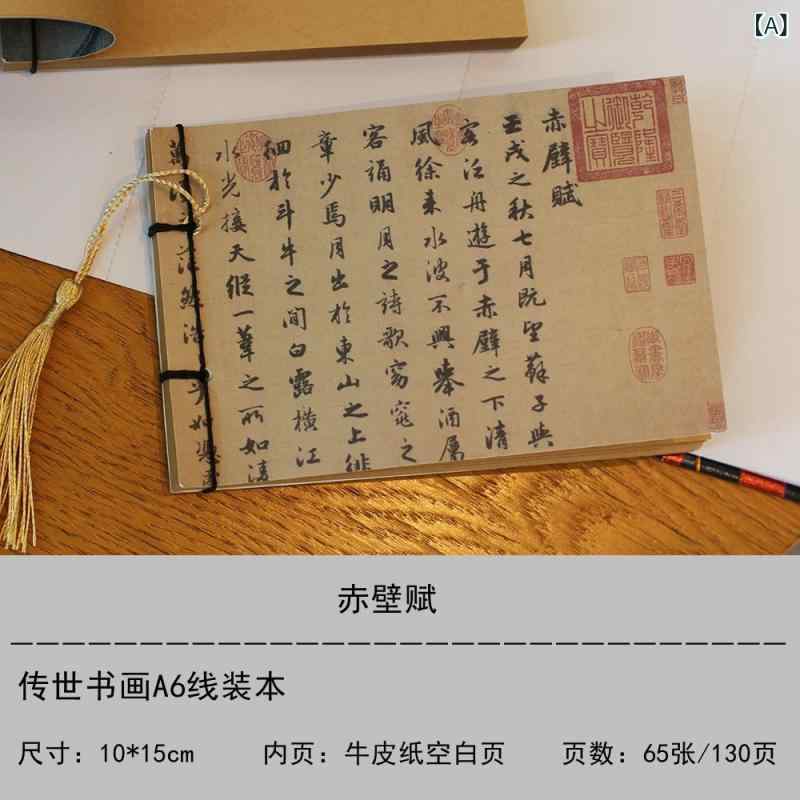 【A】
乾隆御覽山寶
赤壁賦
壬戌之秋七月既望蘇子與
客泛舟遊于赤壁之下清
風徐来水波不興舉酒屬
客誦明月之詩歌窈窕之
章少焉月出於東山之上徘
徊於斗牛之間白露橫江
水光接天縱一葦之所如淩
赤壁赋
传世书画A6线装本
尺寸：10*15cm 内页：牛皮纸空白页 页数：65张/130页